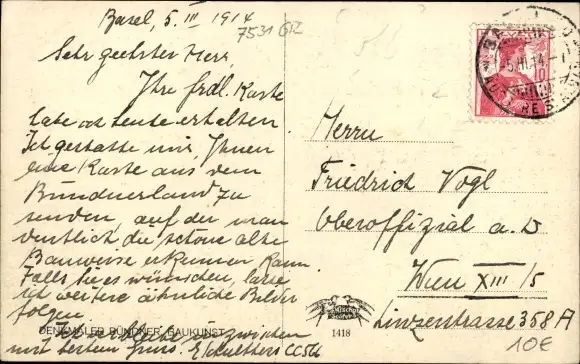 Basel, 5. III 1914
7531 GR
Sehr geehrter Herr,
Ihre frdl. Karte
habe ich heute erhalten
Ich gestatte mir, Ihnen
eine Karte aus dem
Bündnerland zu
senden, auf der man
deutlich die schöne alte
Bauweise erkennen kann
Falls Sie es wünschen, lasse
ich weitere ähnliche Bilder
folgen
DENKMÄLER BÜNDNER BAUKUNST
inzwischen
mit bestem Gruss.
Herrn
Friedrich Vogl
Oberoffizial a. D
Wien XIII/5
Linzerstrasse 368 A
1418
10€